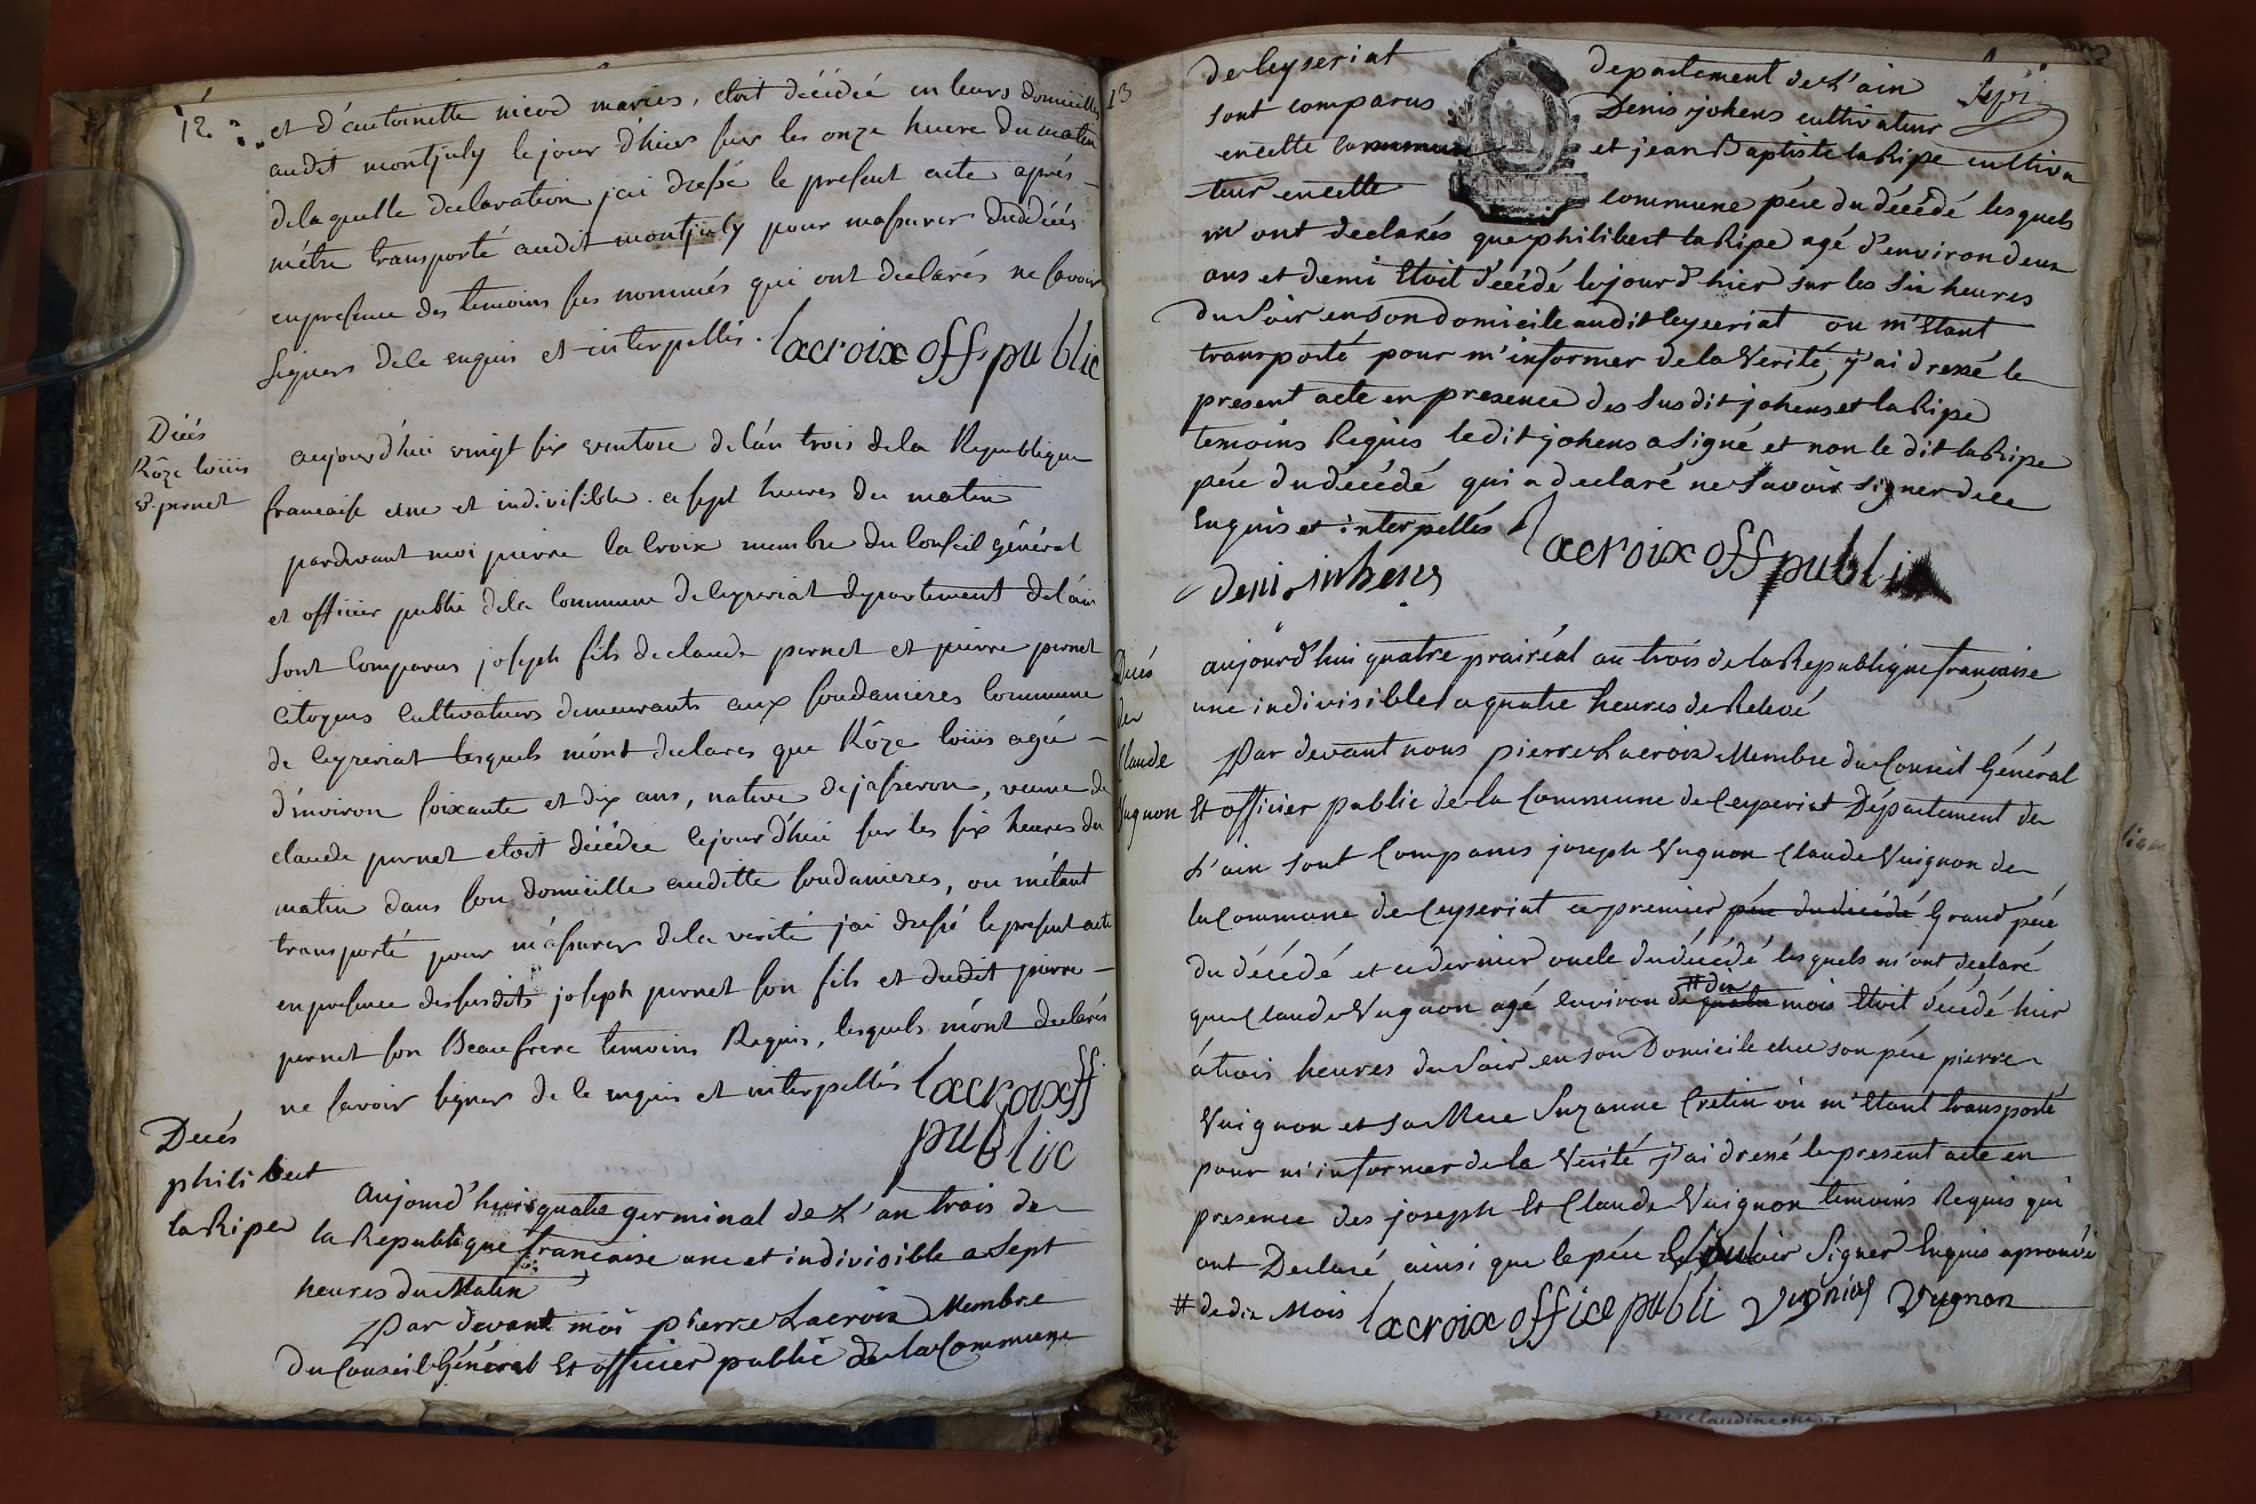 12
et d'antoinette nicod maries, etoit décédée en leurs domicilles
audit montjuly le jour d'hier sur les onze heure du matin
de laquelle declaration j'ai dressé le present acte aprés
m'étre transporté audit montjuly pour massurer dud décés
en presence des temoins sus nommés qui ont declarés ne savoir
signers de ce enquis et interpellés. lacroix off public
Décés
Rôze loüis
v.e pernet
aujourd'hui vingt six ventose de l'an trois de la Republique
francaise une et indivisible. a sept heures du matin
pardevant moi pierre la Croix membre du Conseil général
et officier public de la Commune de Ceyzeriat departement de l'ain
sont Comparus joseph fils de claude pernet et pierre pernet
Citoyens Cultivateurs demeurants aux soudanieres Commune
de Ceyzeriat lesquels m'ont declares que Rôze loüis agée
d'environ soixante et dix ans, native de jasseron, veuve de
claude pernet etoit décédée cejourd'hui sur les six heures du
matin dans son domicille auditte soudanieres, ou m'étant
transporté pour m'assurer de la verité j'ai dressé le present acte
en presence desusdits joseph pernet son fils et dudit pierre
pernet son Beaufrere temoins Requis, lesquels m'ont declarés
ne savoir signer de ce enquis et interpellés lacroix off
public
Decés
philibert
la Ripe
Aujourd'hui quatre germinal de L'an trois de
la Republique francaise une et indivisible a Sept
heures du Matin
Par devant moi pierre Lacroix Membre
du Conseil Général Et officier public de la Commune
13
de Ceyseriat departement de L'ain
sont comparus Denis johens cultivateur
en cette commune et jean Baptiste la Ripe cultiva
teur en cette commune pére du décédé les quels
m'ont declarés que philibert la Ripe agé d'environ deux
ans et demi Etoit décédé le jour d'hier sur les Six heures
du Soir en Son domicile audit Ceyzeriat ou m'Etant
transporté pour m'informer de la Verité, j'ai dressé le
present acte en presence des Susdit johens et la Ripe
temoins Requis le dit johens a Signé et non le dit la Ripe
pére du décédé qui a declaré ne Savoir signer de ce
Enquis et interpellés lacroix off public
deni johens
Décés
de
Claude
Vugnon
aujourd'hui quatre prairéal an trois de la Republique française
une indivisible a quatre heures de Relevé
Par devant nous pierre Lacroix Membre du Conseil Général
Et officier public de la Commune de Ceyseriat Département de
L'ain sont Comparus joseph Vugnon Claude Vuignon de
la Commune de Ceyseriat ce premier pére du décédé Grand pére
du décédé et ce dernier oncle du décédé lesquels m'ont declaré
# dix
que Claude Vugnon agé Environ de quatre mois Etoit décédé hier
á trois heures du Soir en son Domicile chee son pére pierre
Vuignon et sa Mere Suzanne Cretin où m'Etant transporté
pour m'informer de la Verité j'ai dressé le present acte en
presence des joseph Et Claude Vuignon temoins Requis qui
ont Declaré ainsi que le pére Savoir Signer Enquis aprouvé
# de dix Mois lacroix office publi Vugnon